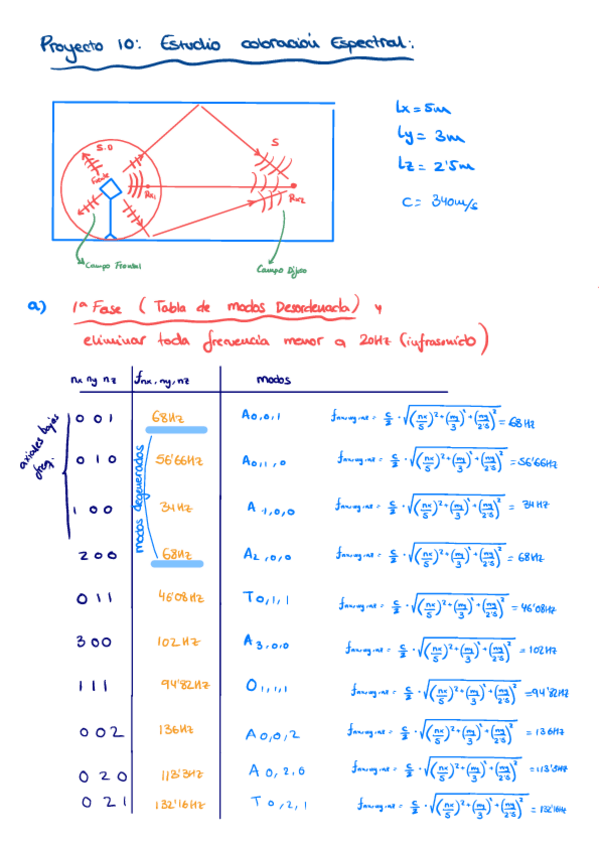 Proyecto 10: Estudio coloración Espectral:
Lx = 5m
Ly = 3m
Lz = 2'5m
C = 340m/s
S.D
S
Fuente
Rx1
Rx2
Campo Frontal
Campo Difuso
a) 1ª Fase ( Tabla de modos Desordenada) y
eliminar toda frecuencia menor a 20Hz (infrasonido)
nx ny nz fnx, ny, nz modos
axiales bajas freq.
modos degenerados
0 0 1 68Hz A0,0,1 fnx,ny,nz = c/2 · √((nx/5)²+(ny/3)²+(nz/2'5)²) = 68Hz
0 1 0 56'66Hz A0,1,0 fnx,ny,nz = c/2 · √((nx/5)²+(ny/3)²+(nz/2'5)²) = 56'66Hz
1 0 0 34Hz A1,0,0 fnx,ny,nz = c/2 · √((nx/5)²+(ny/3)²+(nz/2'5)²) = 34Hz
2 0 0 68Hz A2,0,0 fnx,ny,nz = c/2 · √((nx/5)²+(ny/3)²+(nz/2'5)²) = 68Hz
0 1 1 46'08Hz T0,1,1 fnx,ny,nz = c/2 · √((nx/5)²+(ny/3)²+(nz/2'5)²) = 46'08Hz
3 0 0 102Hz A3,0,0 fnx,ny,nz = c/2 · √((nx/5)²+(ny/3)²+(nz/2'5)²) = 102Hz
1 1 1 94'82Hz O1,1,1 fnx,ny,nz = c/2 · √((nx/5)²+(ny/3)²+(nz/2'5)²) = 94'82Hz
0 0 2 136Hz A0,0,2 fnx,ny,nz = c/2 · √((nx/5)²+(ny/3)²+(nz/2'5)²) = 136Hz
0 2 0 113'3Hz A0,2,0 fnx,ny,nz = c/2 · √((nx/5)²+(ny/3)²+(nz/2'5)²) = 113'3Hz
0 2 1 132'16Hz T0,2,1 fnx,ny,nz = c/2 · √((nx/5)²+(ny/3)²+(nz/2'5)²) = 132'16Hz